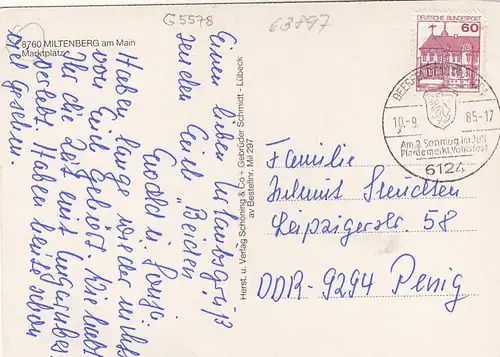 G5578
63897
8760 MILTENBERG am Main
Marktplatz
Einen lieben Urlaubsgruß
senden Euch Beiden
Ewald u. Sonja.
Haben lange wieder nichts
von Euch gehört. Wie habt
Ihr die Zeit mit
verlebt. Haben heute schon
viel gesehen.
Herst. u. Verlag Schöning & Co + Gebrüder Schmidt - Lübeck
av Bestellnr. Mil 297
DEUTSCHE BUNDESPOST
60
BEERFELDEN
10.-9. 85-17
Am 2. Sonntag im Juli
Pferdemarkt, Volksfest
6124
Familie
Helmut
Leipzigerstr. 58
DDR-9294 Penig